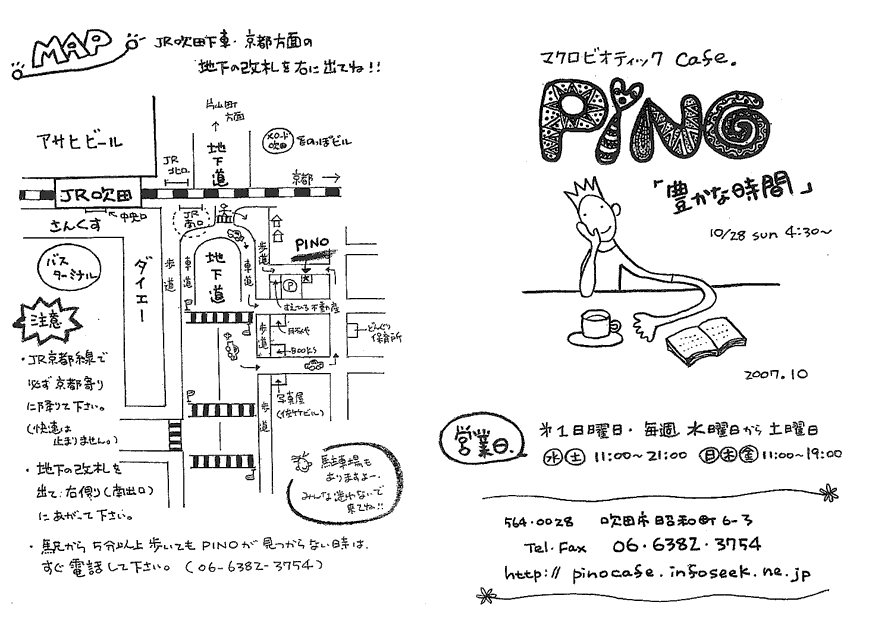 MAP
JR吹田下車・京都方面の
地下の改札を右に出てね!!
片山町
方面
アサヒビール
メロード
吹田
きのっぽビル
地下道
JR
北口
京都
JR吹田
中央口
さんくす
JR
南口
バス
ターミナル
ダイエー
歩道
車道
地下道
車道
歩道
PINO
P
不動産
歩道
BOOKS
どんぐり
保育所
写真屋
(佐竹ビル)
歩道
注意
・JR京都線で
必ず京都寄り
に降りて下さい。
(快速は
止まりません。)
・地下の改札を
出て右側り(南出口)
にあがって下さい。
駐車場も
ありますよー.
みんな迷わないで
来てね!!
・駅から5分以上歩いてもPINOが見つからない時は、
すぐ電話して下さい。(06-6382-3754)
マクロビオティック Cafe.
PiNO
「豊かな時間」
10/28 sun 4:30~
2007.10
営業日.
第1日曜日・毎週水曜日から土曜日
水 土 11:00~21:00 日 木 金 11:00~19:00
564-0028 吹田市昭和町6-3
Tel・Fax 06・6382・3754
http://pinocafe.infoseek.ne.jp